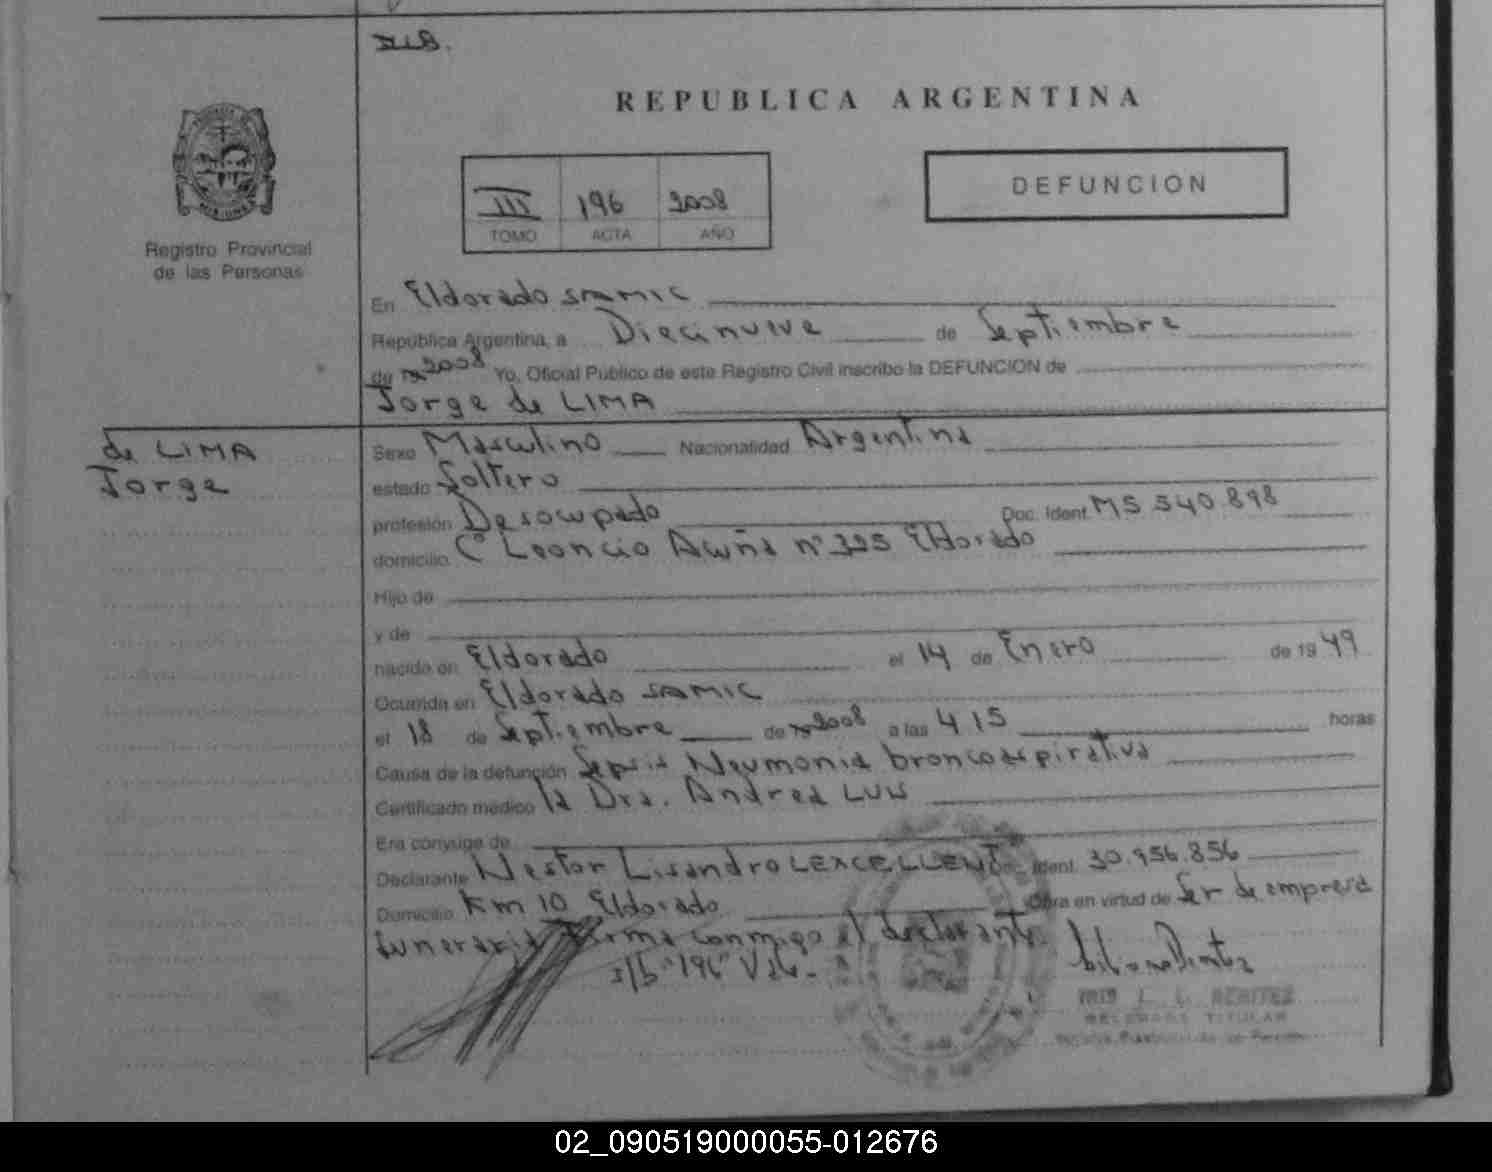 REPUBLICA ARGENTINA
III 196 2008
TOMO ACTA AÑO
DEFUNCION
MISIONES
Registro Provincial
de las Personas
En Eldorado SAMIC
República Argentina, a Diecinueve de Septiembre
de 2008 Yo, Oficial Público de este Registro Civil inscribo la DEFUNCION de
Jorge de LIMA
de LIMA
Jorge
Sexo Masculino Nacionalidad Argentina
estado Soltero
profesión Desocupado Doc. Ident. M5.540.898
domicilio Cº Leoncio Acuña nº 395 Eldorado
Hijo de
y de
nacido en Eldorado el 14 de Enero de 1949
Ocurrida en Eldorado SAMIC
el 18 de Septiembre de 2008 a las 4 15 horas
Causa de la defunción Sepsis Neumonia broncoaspirativa
Certificado médico la Dra. Andrea LUIS
Era cónyuge de
Declarante Nestor Lisandro LEXCELLENT Doc. Ident. 30.956.856
Domicilio Km 10 Eldorado Obra en virtud de Ser de empresa
funeraria Firma conmigo el declarante.
s/b "196" Vale-
IRIS L. L. BENITEZ
DELEGADA TITULAR
02_090519000055-012676